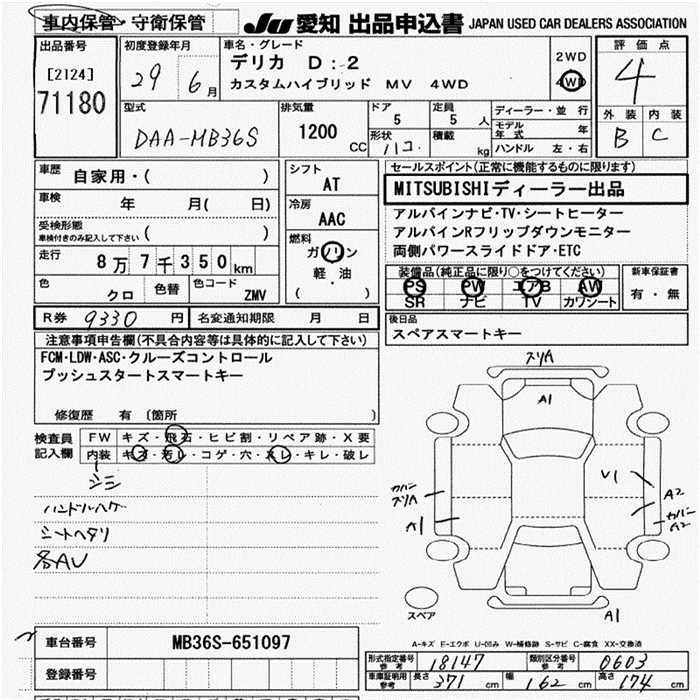 車内保管・守衛保管 JU 愛知 出品申込書 JAPAN USED CAR DEALERS ASSOCIATION
出品番号 初度登録年月 車名・グレード 評価点
[2124] 29 6月 デリカ D:2 2WD 4
71180 カスタムハイブリッド MV 4WD 4WD
型式 排気量 ドア 定員 ディーラー・並行 外装 内装
DAA-MB36S 1200 CC 5 5人 モデル年式 年 B C
形状 ハコ. 積載 kg ハンドル 左・右
車歴 自家用・( ) シフト AT セールスポイント(正常に機能するものに限ります)
車検 年 月( 日) 冷房 AAC MITSUBISHIディーラー出品
受検形態 アルパインナビ・TV・シートヒーター
車検付きのみ記入して下さい ( ) 燃料 アルパインRフリップダウンモニター
走行 8万7千350km ガソリン 両側パワースライドドア・ETC
軽・油
( )
色 クロ 色替 色コード ZMV
装備品(純正品に限り○をつけてください) 新車保証書
PS PW エアB AW 有・無
SR ナビ TV カワシート
R券 9330 円 名変通知期限 月 日 後日品
スペアスマートキー
注意事項申告欄(不具合内容等は具体的に記入して下さい)
FCM・LDW・ASC・クルーズコントロール
プッシュスタートスマートキー
修復歴 有 (箇所 )
検査員記入欄 FW キズ・飛石・ヒビ割・リペア跡・X要
内装 キズ・汚レ・コゲ・穴・スレ・キレ・破レ
シミ
ハンドルハゲ
シートヘタリ
各AU
スリA
A1
V1
カバースリA
A2
A1
カバーA2
スペア
A1
A-キズ E-エクボ U-凹み W-補修跡 S-サビ C-腐食 XX-交換済
車台番号 MB36S-651097
登録番号
形式指定番号 参考 18147 類別区分番号 参考 0603
車庫証明用 参考 長さ 371 cm 幅 162 cm 高さ 174 cm